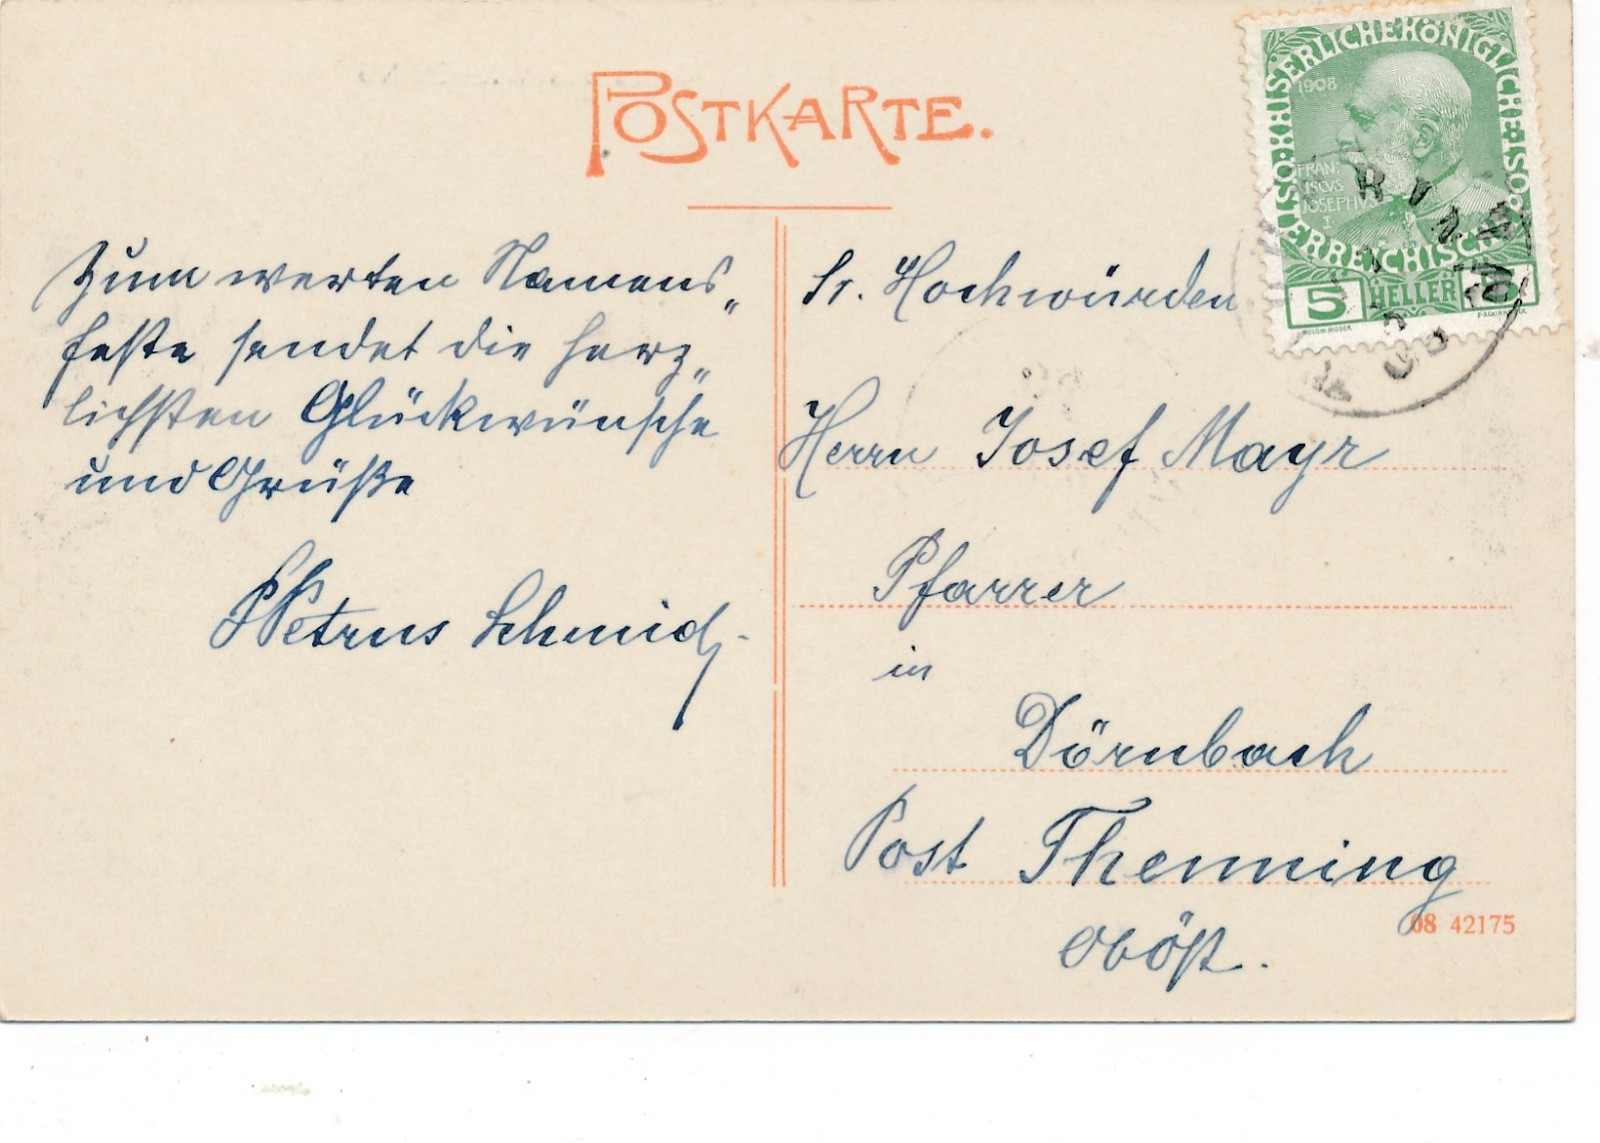 POSTKARTE.
Zum werten Namens„
feste sendet die herz„
lichsten Glückwünsche
und Grüße
Petrus Schmid
Sr. Hochwürden
Herrn Josef Mayr
Pfarrer
in
Dörnbach
Post Thenning
Oböst.
08 42175
KAISERLICHE KÖNIGLICHE ÖSTERREICHISCHE
1908
FRAN
CISCVS
JOSEPHVS
I
5 HELLER 5